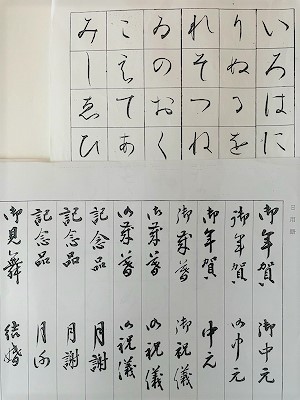 いろはに
りぬるを
れそつね
ゐのおく
こえてあ
みしゑひ
御年賀 御中元
御年賀 お中元
御年賀 中元
御歳暮 御祝儀
お歳暮 お祝儀
お歳暮 お祝儀
記念品 月謝
記念品 月謝
記念品 月謝
御見舞 結婚